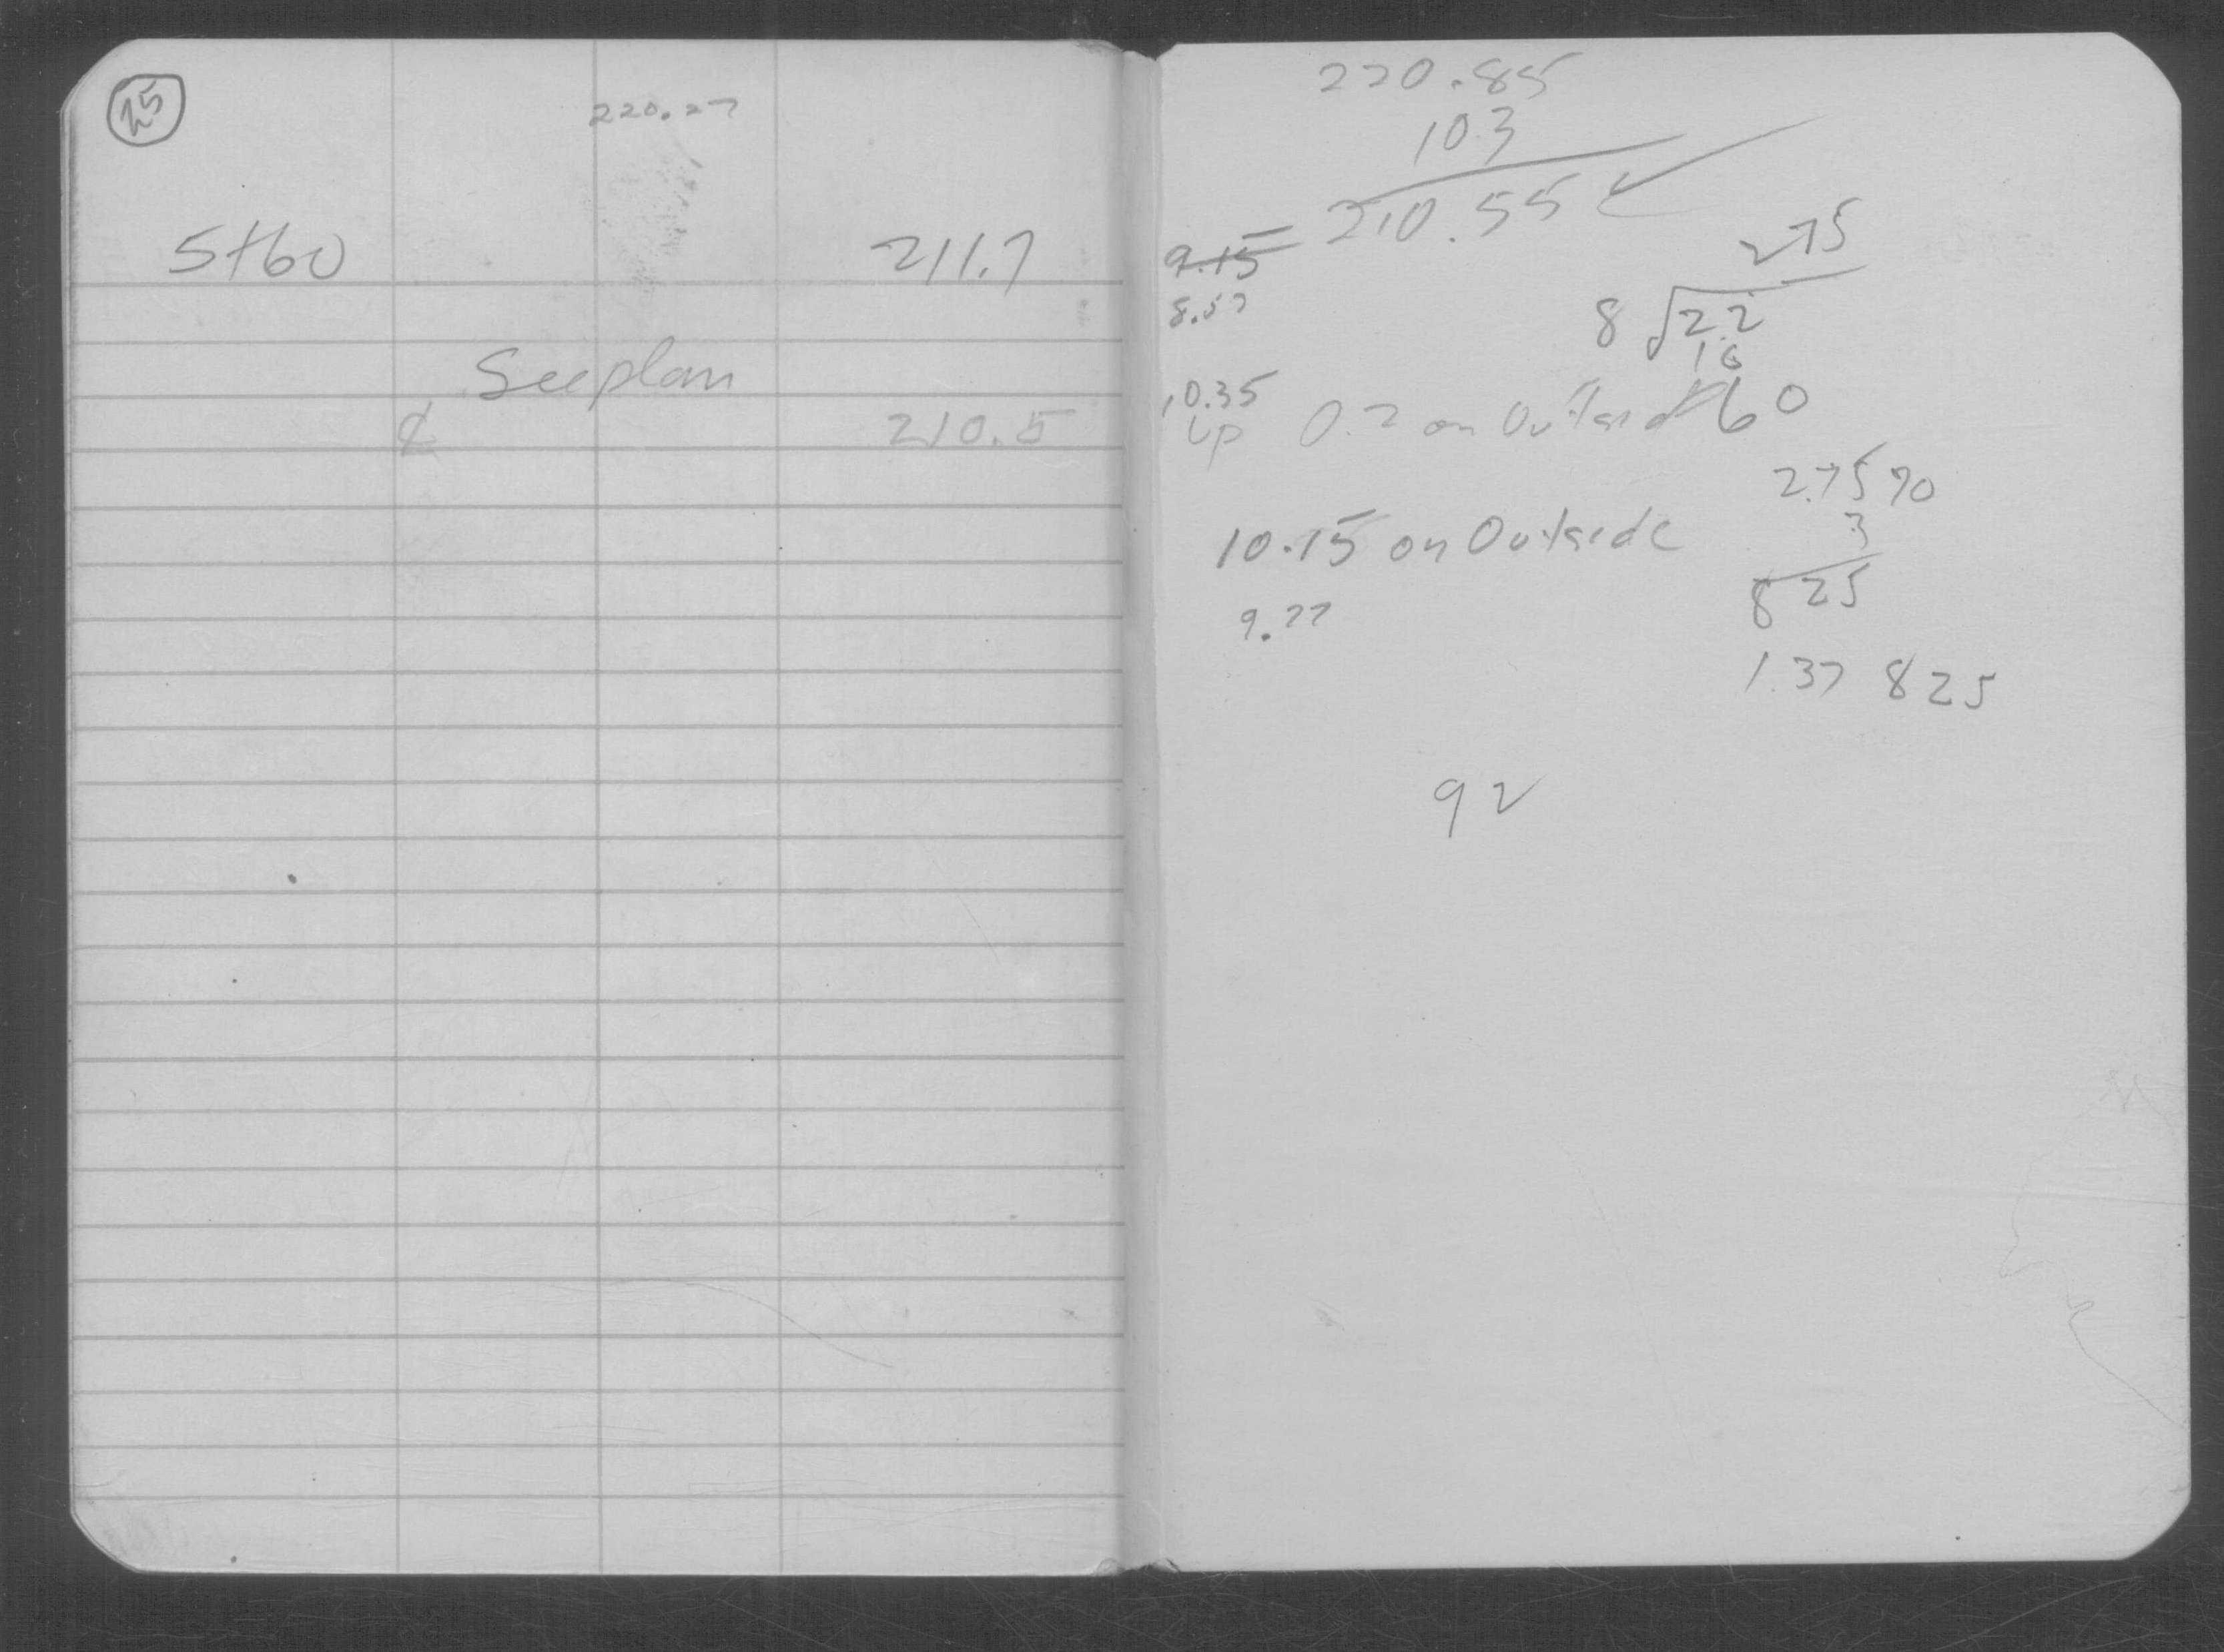 25
220.27
5+60 211.7
See plan
℄ 210.5
220.85
10.3
210.55 ✓
9.15
8.57
275
8 √2.2
16
60
10.35
up 0.2 on Outside
2.75 70
3
10.15 on Outside
8 25
9.77
1.37 825
92